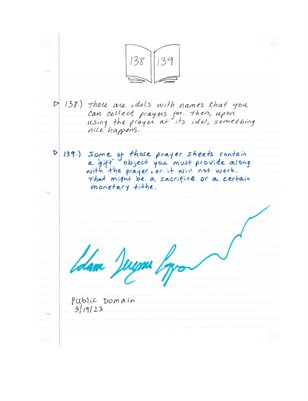 138 139
▷ 138.) There are idols with names that you
can collect prayers for. Then, upon
using the prayer at its idol, something
nice happens.
▷ 139.) Some of those prayer sheets contain
a "gift" object you must provide along
with the prayer, or it will not work.
That might be a sacrifice or a certain
monetary tithe.
Adam
Public Domain
3/19/23